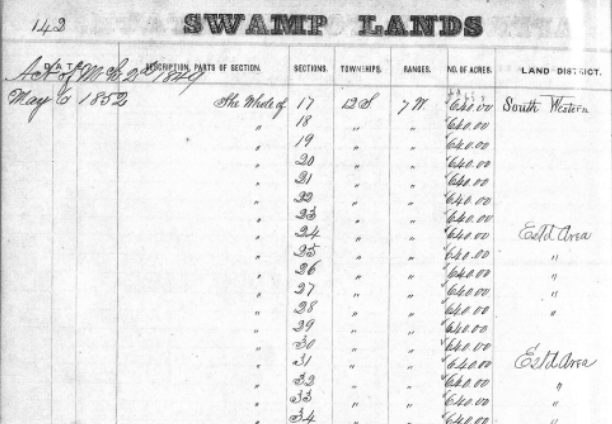 142 SWAMP LANDS
DATE DESCRIPTION, PARTS OF SECTION. SECTIONS. TOWNSHIPS. RANGES. NO. OF ACRES. LAND DISTRICT.
Act of Mch 2nd 1849
May 6 1852 The Whole of 17 12 S 7 W. 640.00 South Western
" 18 " " 640.00
" 19 " " 640.00
" 20 " " 640.00
" 21 " " 640.00
" 22 " " 640.00
" 23 " " 640.00
" 24 " " 640.00 Est'd Area
" 25 " " 640.00 "
" 26 " " 640.00 "
" 27 " " 640.00 "
" 28 " " 640.00 "
" 29 " " 640.00
" 30 " " 640.00
" 31 " " 640.00 Est'd Area
" 32 " " 640.00 "
" 33 " " 640.00 "
" 34 " " 640.00 "